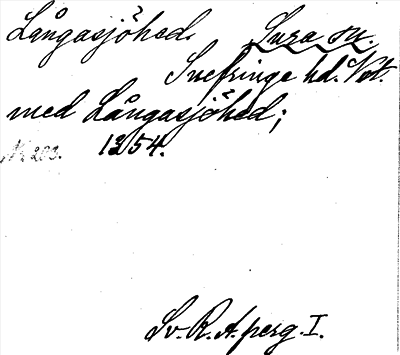 Långasjöhed. Lura sn.
Snefringe hd. Vstm.
med Långasjöhed;
N. 203. 1254.
Sv. R. A. perg. I.